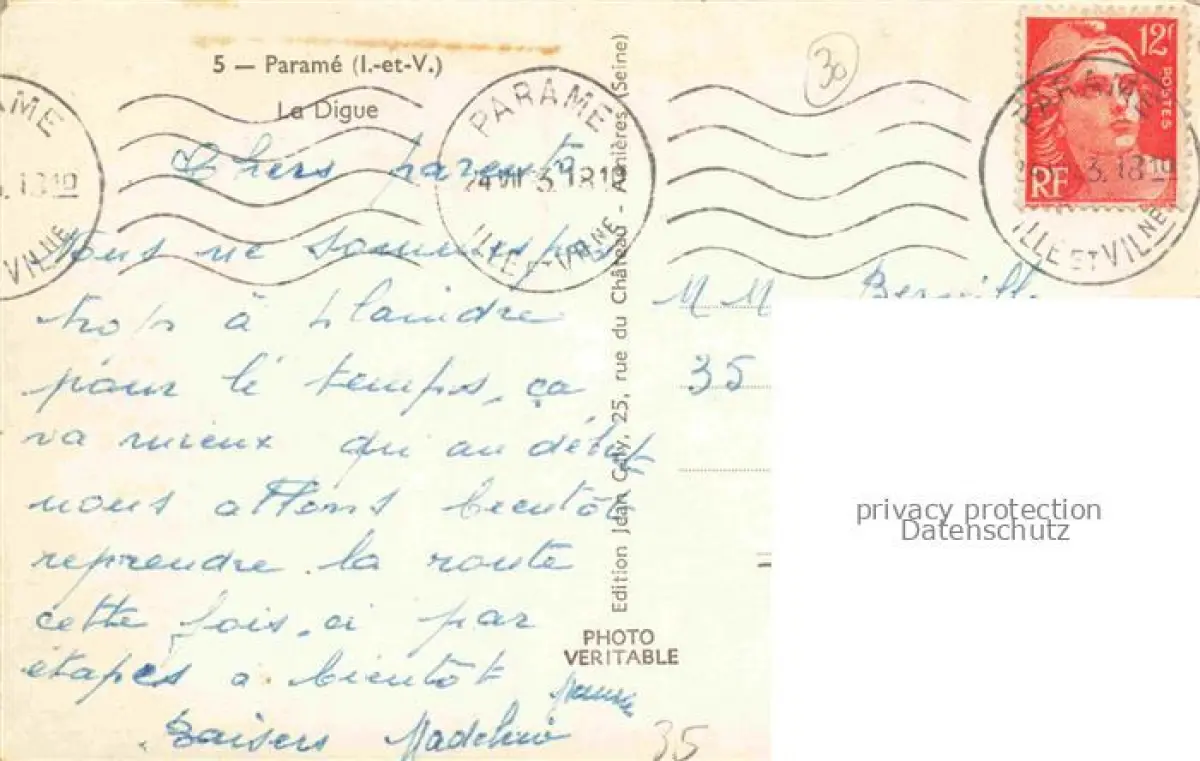 5 — Paramé (I.-et-V.)
La Digue
Chers parents
Nous ne sommes pas
trop à plaindre
pour le temps, ça
va mieux qu'au début
nous allons bientôt
reprendre la route
cette fois-ci par
étapes a bientôt
Baisers Madeleine
PARAME
24 VII 3. 18 10
ILLE ET VILNE
PARAME
3. 1810
ILLE ET VILNE
AME
1810
VILNE
Edition Jean Cély, 25, rue du Château - Asnières (Seine)
PHOTO
VERITABLE
30
12f
POSTES
RF
M M
35
35
privacy protection
Datenschutz